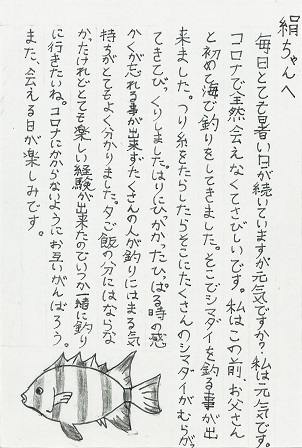 絹ちゃんへ
毎日とても暑い日が続いていますが元気ですか?私は元気です。
コロナで全然会えなくてさびしいです。私はこの前、お父さん
と初めて海で釣りをしてきました。そこでシマダイを釣る事が出
来ました。つり糸をたらしたらそこにたくさんのシマダイがむらが
てきてびっくりしました。はりにひっかかったひっぱる時の感
かくが忘れる事が出来ずたくさんの人が釣りにはまる気
持ちがとてもよく分かりました。夕ご飯の分にはならな
かったけれどとても楽しい経験が出来たのでいつか一緒に釣り
に行きたいね。コロナにかからないようにお互いがんばろう。
また、会える日が楽しみです。